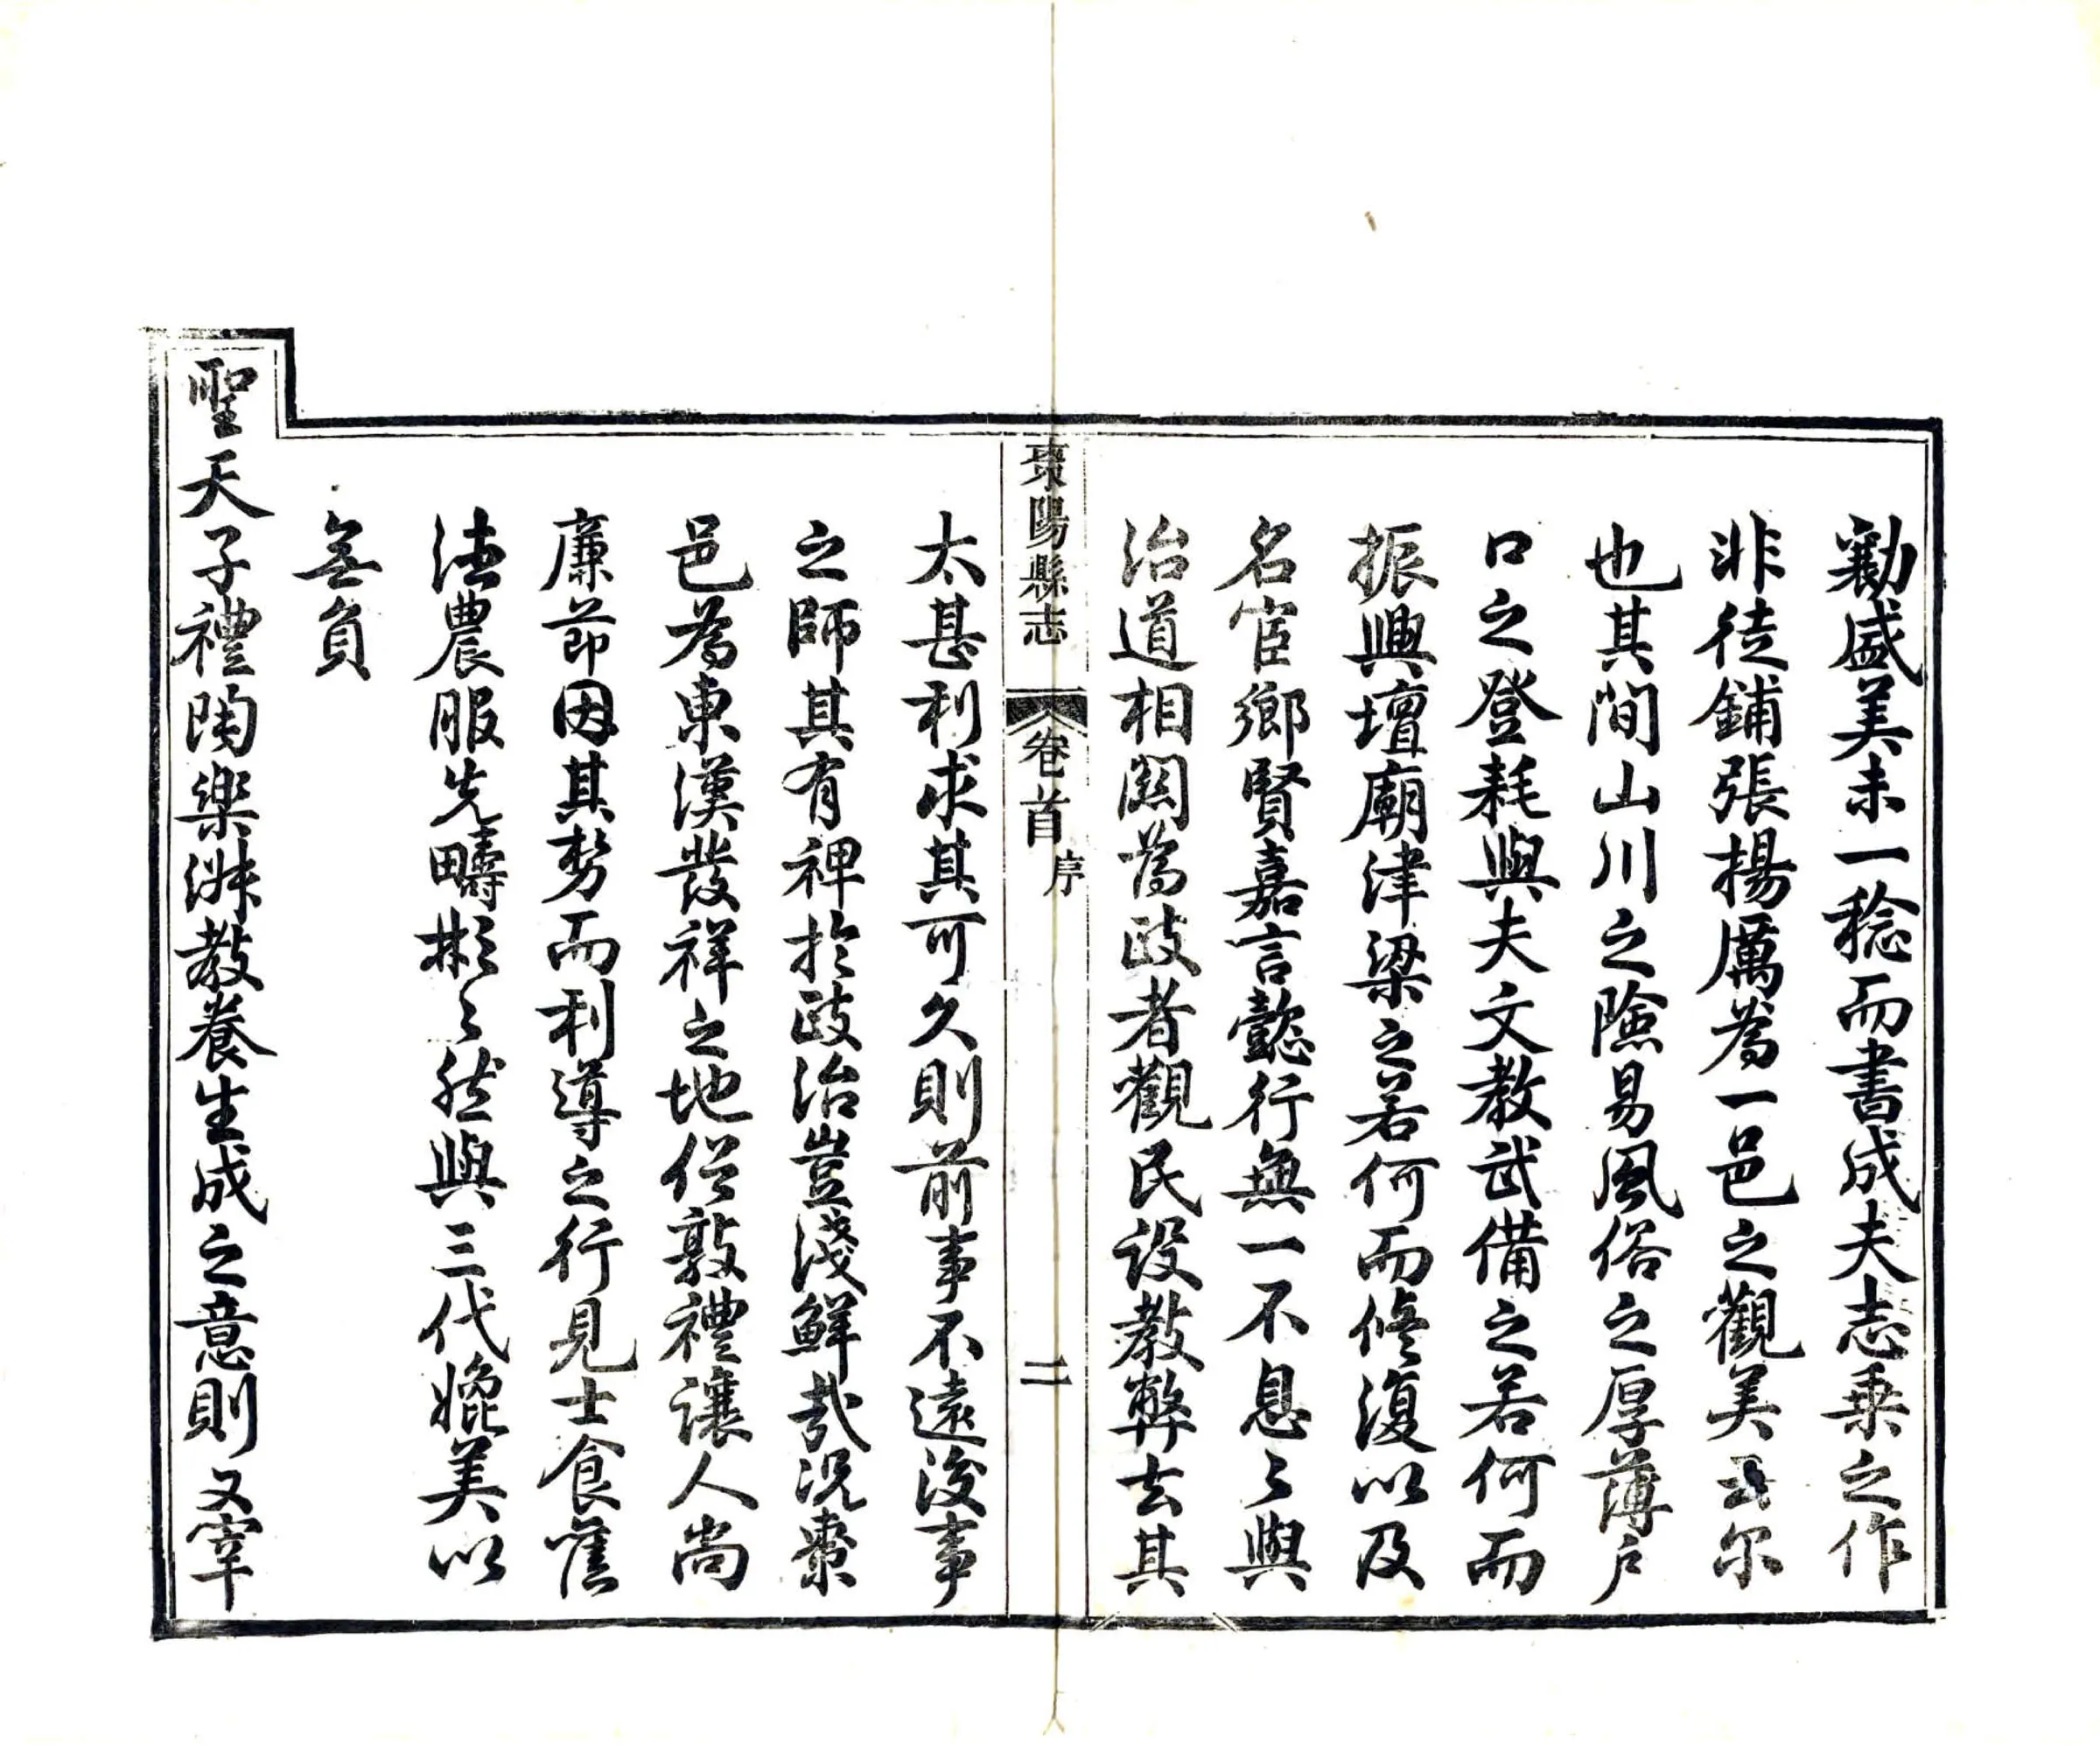 勷盛美未一稔而書成夫志乗之作
非徒鋪張揚厲為一邑之觀美云尔
也其間山川之險易風俗之厚薄户
口之登耗與夫文教武備之若何而
振興壇廟津梁之若何而修復以及
名宦鄉賢嘉言懿行無一不息〻與
治道相関為政者觀民設教弊去其
棗陽縣志 卷首 序 二
太甚利求其可久則前事不遠後事
之師其有裨於政治豈淺鮮哉況棗
邑為東漢發祥之地俗敦禮讓人尚
廉節因其勢而利導之行見士食舊
德農服先疇彬〻然與三代媲美以
無負
聖天子禮陶樂淑教養生成之意則又宰